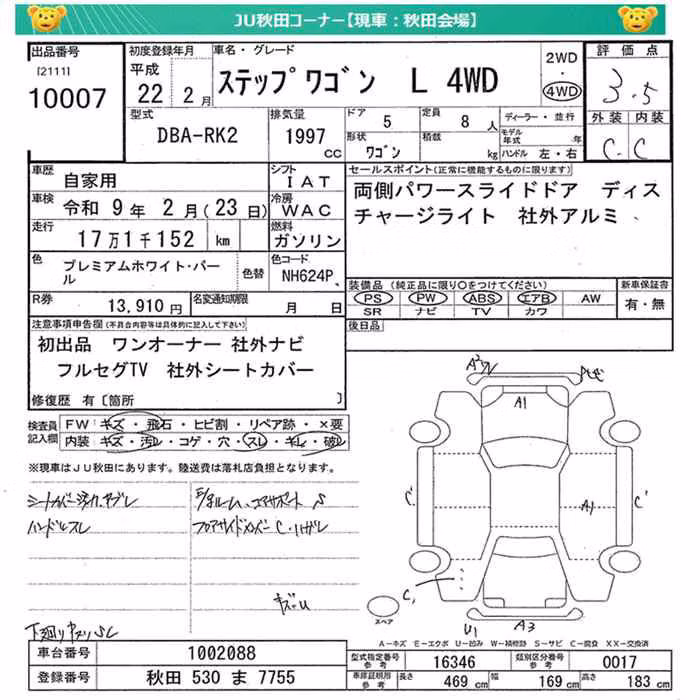 JU秋田コーナー【現車：秋田会場】
出品番号 初度登録年月 車名・グレード 評価点
[2111] 10007
平成 22年 2月
ステップワゴン L 4WD
2WD・4WD
3.5
外装 内装
C C
型式 DBA-RK2
排気量 1997 cc
ドア 5 定員 8人
形状 ワゴン 積載 kg
ディーラー・並行
モデル年式 年
ハンドル 左・右
車歴 自家用
シフト IAT
車検 令和 9年 2月(23日)
冷房 WAC
走行 17万1千152 km
燃料 ガソリン
色 プレミアムホワイト・パール 色替
色コード NH624P
R券 13,910円 名変通知期限 月 日
セールスポイント(正常に機能するものに限ります)
両側パワースライドドア ディス
チャージライト 社外アルミ
装備品(純正品に限り○をつけてください) 新車保証書
PS PW ABS エアB AW 有・無
SR ナビ TV カワ
後日品
注意事項申告欄(不具合内容等は具体的に記入して下さい)
初出品 ワンオーナー 社外ナビ
フルセグTV 社外シートカバー
修復歴 有〔箇所 〕
検査員記入欄
FW キズ・飛石・ヒビ割・リペア跡・×要
内装 キズ・汚レ・コゲ・穴・スレ・ギレ・破レ
※現車はJU秋田にあります。陸送費は落札店負担となります。
シートカバー汚れ、ヤブレ
ハンドルスレ
A1
A1
C'
C'
C,
U1
A3
スペア
A－キズ E－エクボ U－凹み W－補修跡 S－サビ C－腐食 XX－交換済
車台番号 1002088
登録番号 秋田 530 ま 7755
型式指定番号 参考 16346 類別区分番号 参考 0017
車庫証明用 参考 長さ 469 cm 幅 169 cm 高さ 183 cm